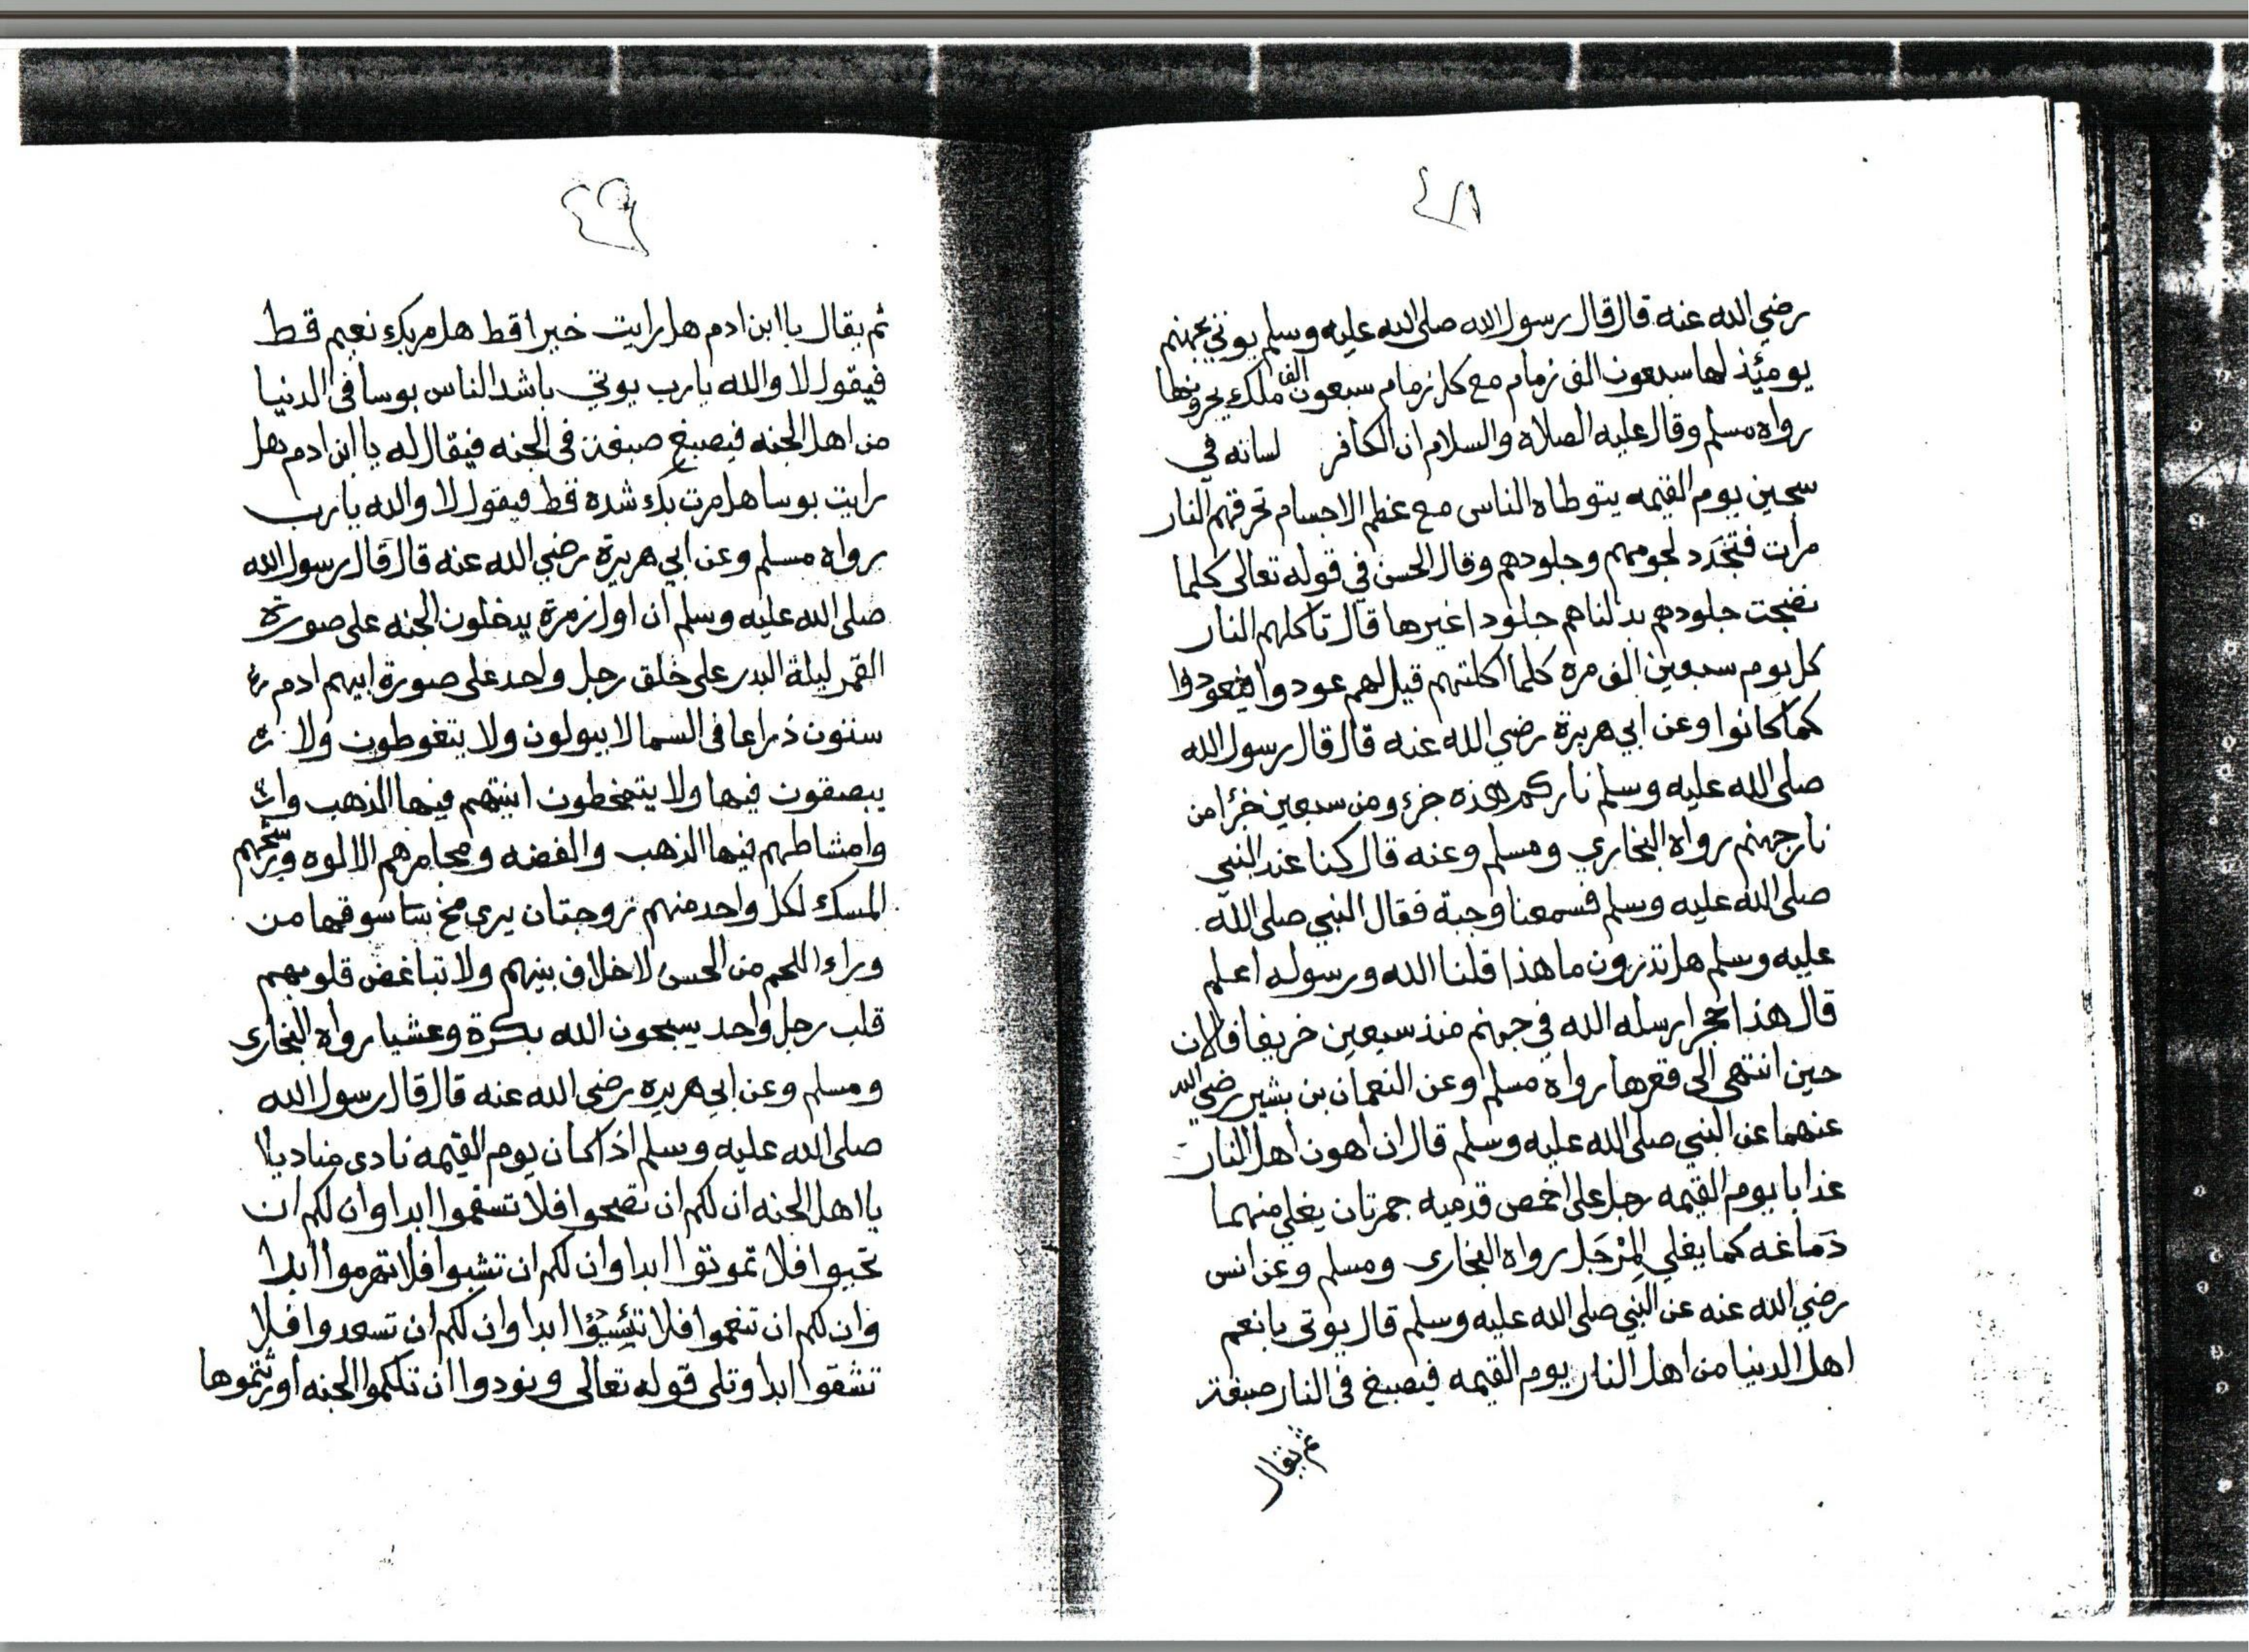 رضي الله عنه قال قال رسول الله صلى الله عليه وسلم يوتي بجهنم
يومئذ لها سبعون الف زمام مع كل زمام سبعون الف ملك يجرونها
رواه مسلم وقال عليه الصلاة والسلام ان الكافر لسانه في
سجين يوم القيمه يتوطاه الناس مع عظم الاجسام تحرقهم النار
مرات فتجدد لحومهم وجلودهم وقال الحسن في قوله تعالى كلما
نضجت جلودهم بدلناهم جلودا غيرها قال تاكلهم النار
كل يوم سبعين الف مرة كلما اكلتهم قيل لهم عودوا فيعودوا
كما كانوا وعن ابي هريرة رضي الله عنه قال قال رسول الله
صلى الله عليه وسلم ناركم هذه جزء ومن سبعين جزا من
نار جهنم رواه البخاري ومسلم وعنه قال كنا عند النبي
صلى الله عليه وسلم فسمعنا وجبة فقال النبي صلى الله
عليه وسلم هل تدرون ما هذا قلنا الله ورسوله اعلم
قال هذا حجر ارسله الله في جهنم منذ سبعين خريفا فالان
حين انتهى الى قعرها رواه مسلم وعن النعمان بن بشير رضي الله
عنهما عن النبي صلى الله عليه وسلم قال ان اهون اهل النار
عذابا يوم القيمه رجل على اخمص قدميه جمرتان يغلي منهما
دماغه كما يغلي المِرْجَل رواه البخارى ومسلم وعن انس
رضي الله عنه عن النبي صلى الله عليه وسلم قال يوتى بانعم
اهل الدنيا من اهل النار يوم القيمه فيصبغ في النار صبغة
ثم يقال
ثم يقال يا ابن ادم هل رايت خيرا قط هل مر بك نعيم قط
فيقول لا والله يا رب يوتي باشد الناس بوسا في الدنيا
من اهل الجنه فيصبغ صبغة في الجنه فيقال له يا ابن ادم هل
رايت بوسا هل مرت بك شده قط فيقول لا والله يا رب
رواه مسلم وعن ابي هريرة رضي الله عنه قال قال رسول الله
صلى الله عليه وسلم ان اول زمرة يدخلون الجنه على صورة
القمر ليلة البدر على خلق رجل واحد على صورة ابيهم ادم
ستون ذراعا في السما لا يبولون ولا يتغوطون ولا
يبصقون فيها ولا يتمخطون انيتهم فيها الذهب
وامشاطهم فيها الذهب والفضه ومجامرهم الالوه ورشحهم
المسك لكل واحد منهم زوجتان يرى مخ سوقهما من
وراء اللحم من الحسن لا خلاف بينهم ولا تباغض قلوبهم
قلب رجل واحد يسبحون الله بكرة وعشيا رواه البخارى
ومسلم وعن ابي هريره رضي الله عنه قال قال رسول الله
صلى الله عليه وسلم اذا كان يوم القيمه نادى مناديا
يا اهل الجنه ان لكم ان تصحوا فلا تسقموا ابدا وان لكم ان
تحيوا فلا تموتوا ابدا وان لكم ان تشبوا فلا تهرموا ابدا
وان لكم ان تنعموا فلا ابدا وان لكم ان تسعدوا فلا
تشقوا ابدا وتلى قوله تعالى ونودوا ان تلكموا الجنه اورثتموها